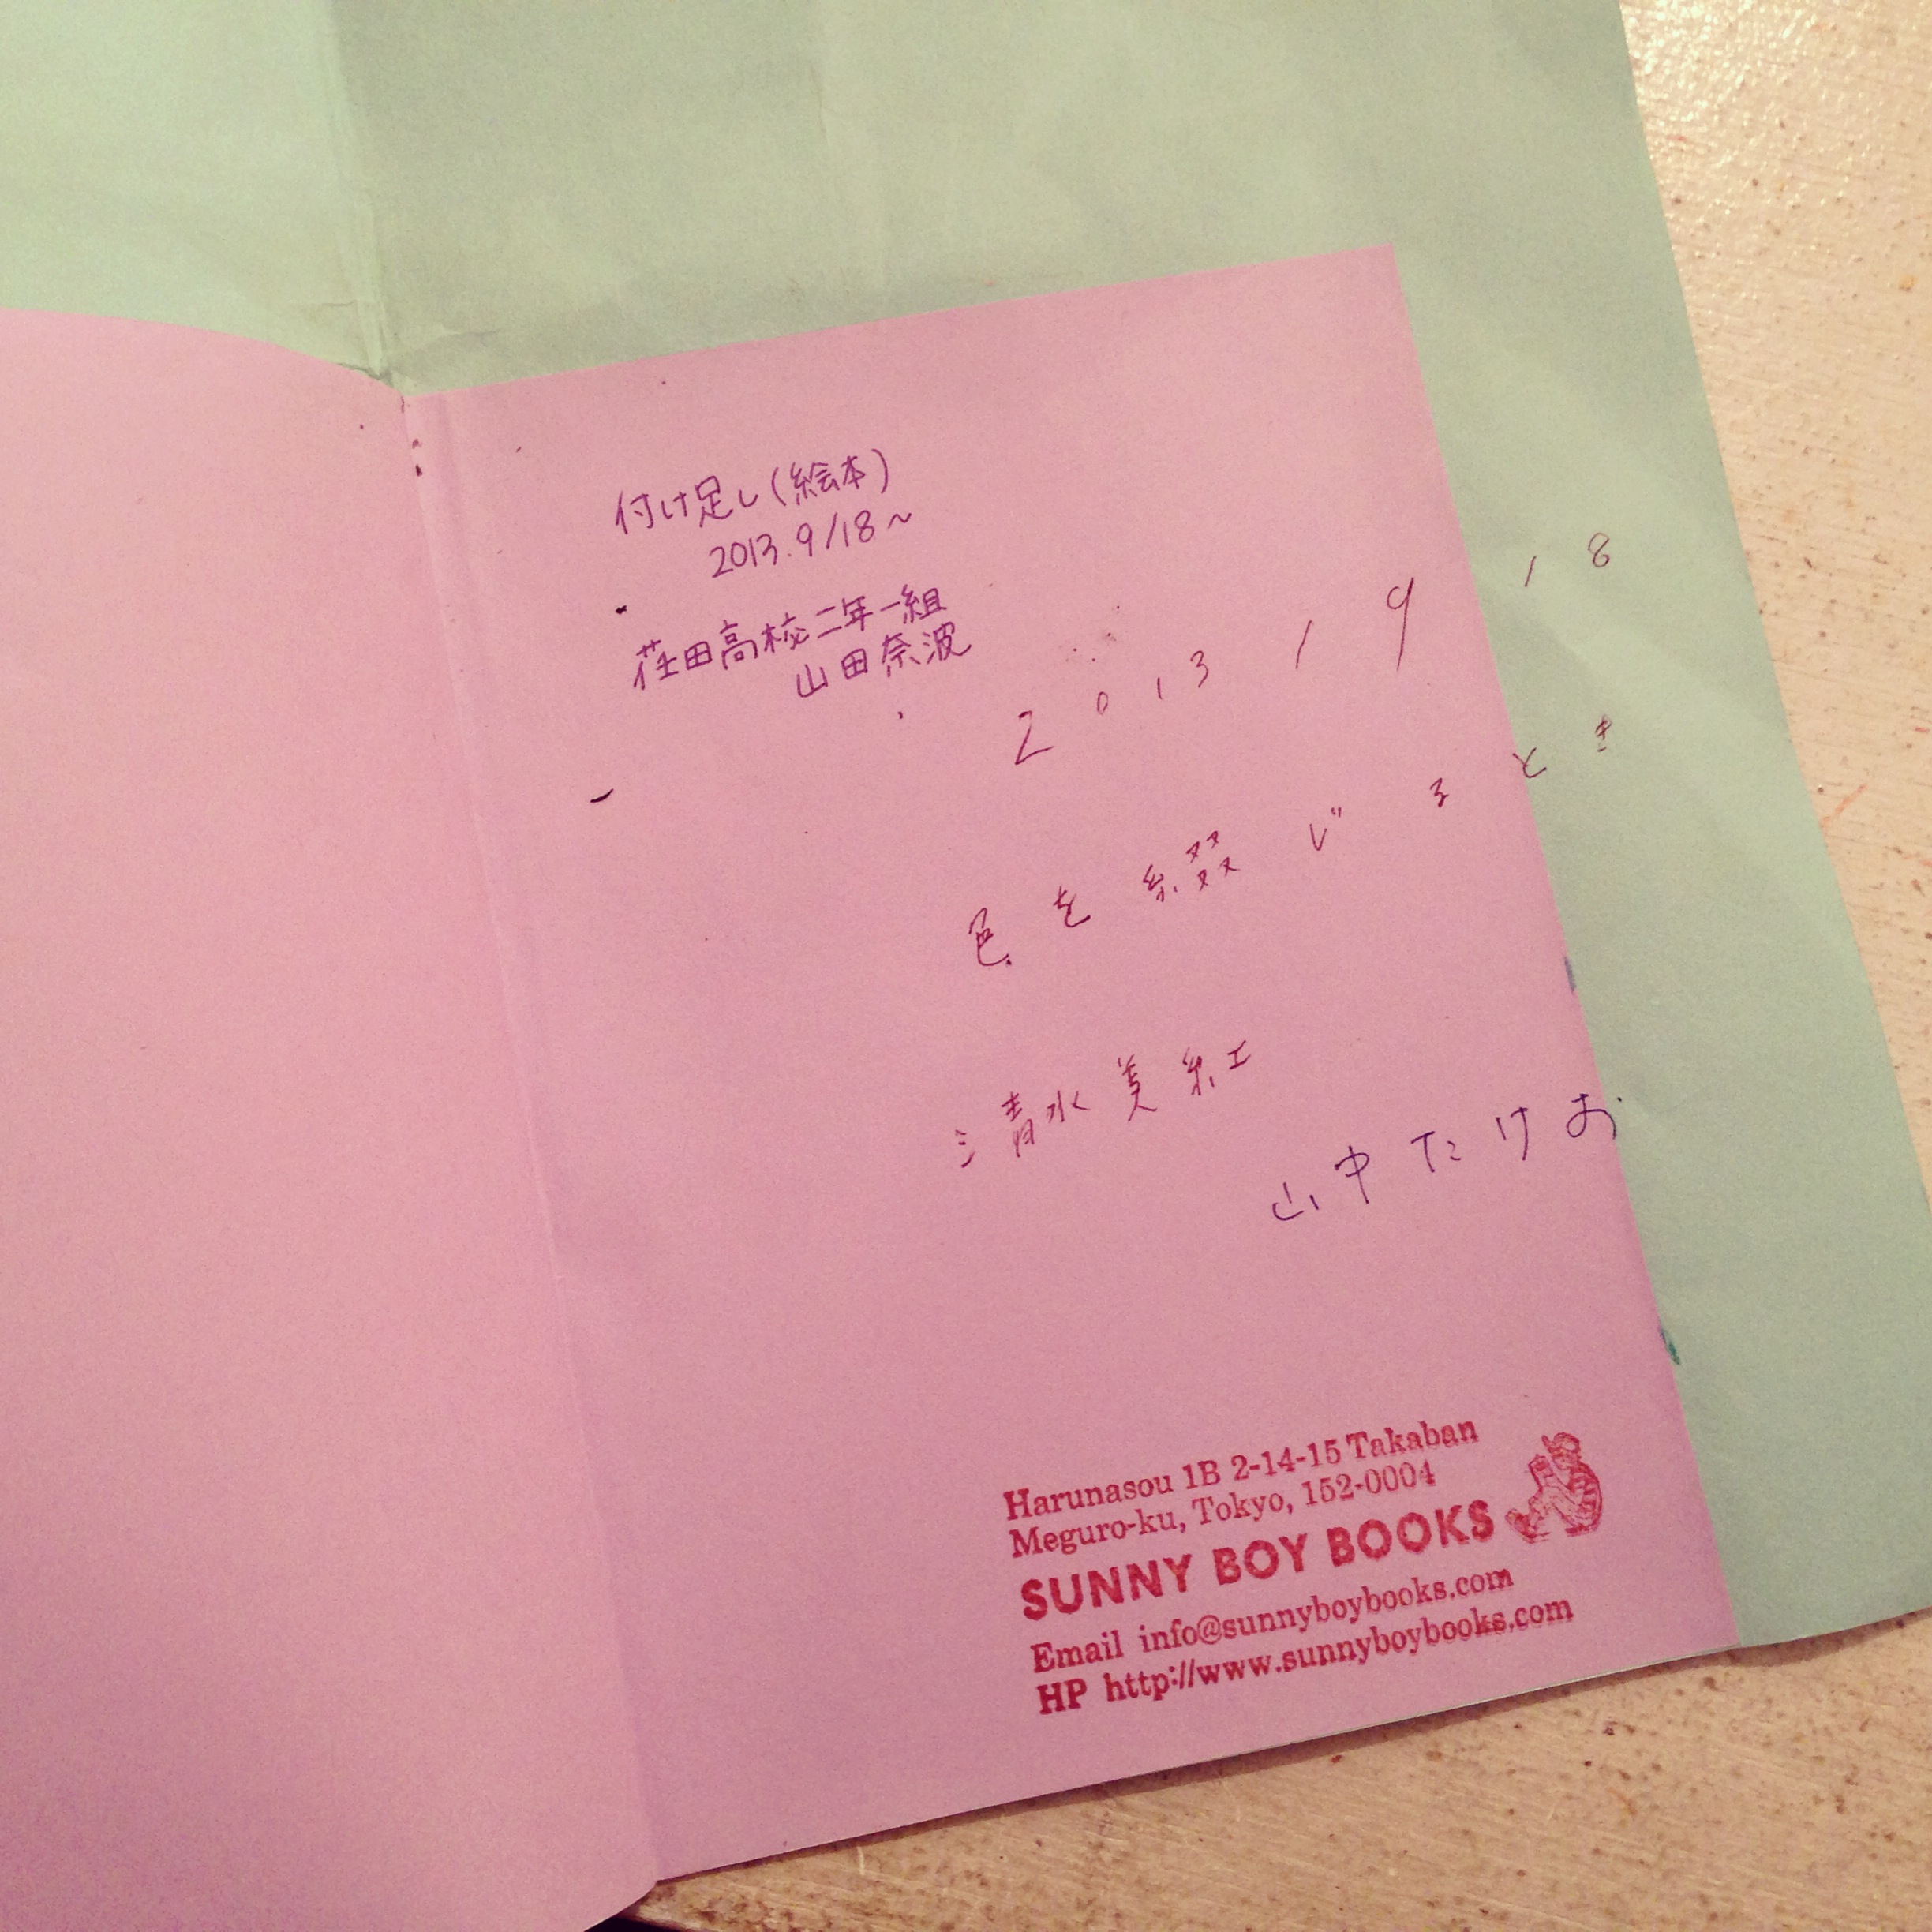 付け足し(絵本)
2013.9/18~
荏田高校二年一組
山田奈波
2013/9 18
色を綴じるとき
清水美紅
山中たけお
Harunasou 1B 2-14-15 Takaban
Meguro-ku, Tokyo, 152-0004
SUNNY BOY BOOKS
Email info@sunnyboybooks.com
HP http://www.sunnyboybooks.com